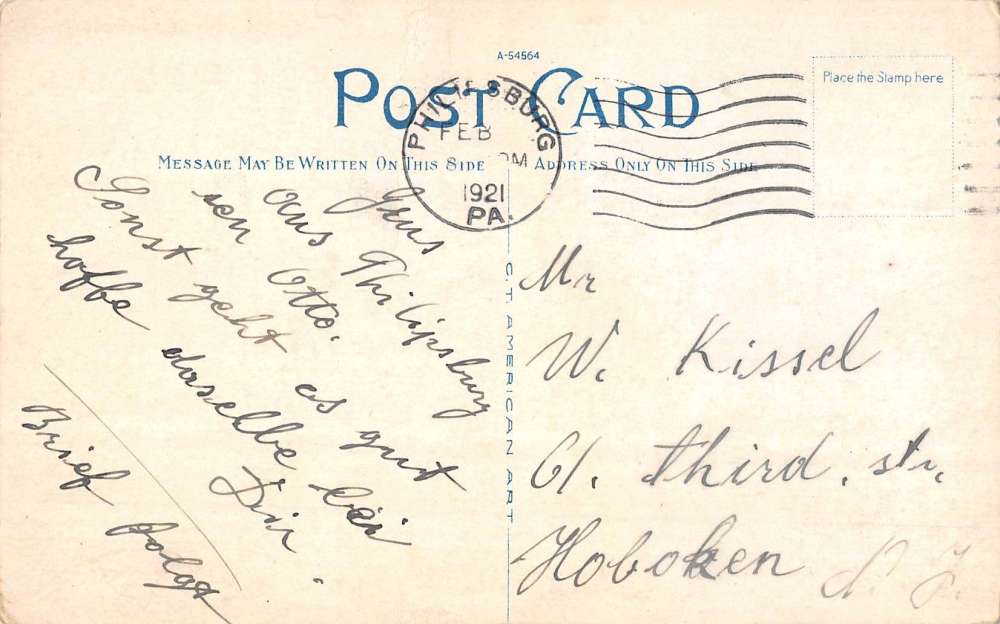 A-54564
POST CARD
Place the Stamp here
PHILIPSBURG
FEB
PM
1921
PA.
MESSAGE MAY BE WRITTEN ON THIS SIDE
ADDRESS ONLY ON THIS SIDE
aus Philipsburg
von Otto.
Sonst geht es gut
hoffe dasselbe bei
Dir.
Brief folgt
C.T. AMERICAN ART
Mr
W. Kissel
61. Third. str.
Hoboken N. J.